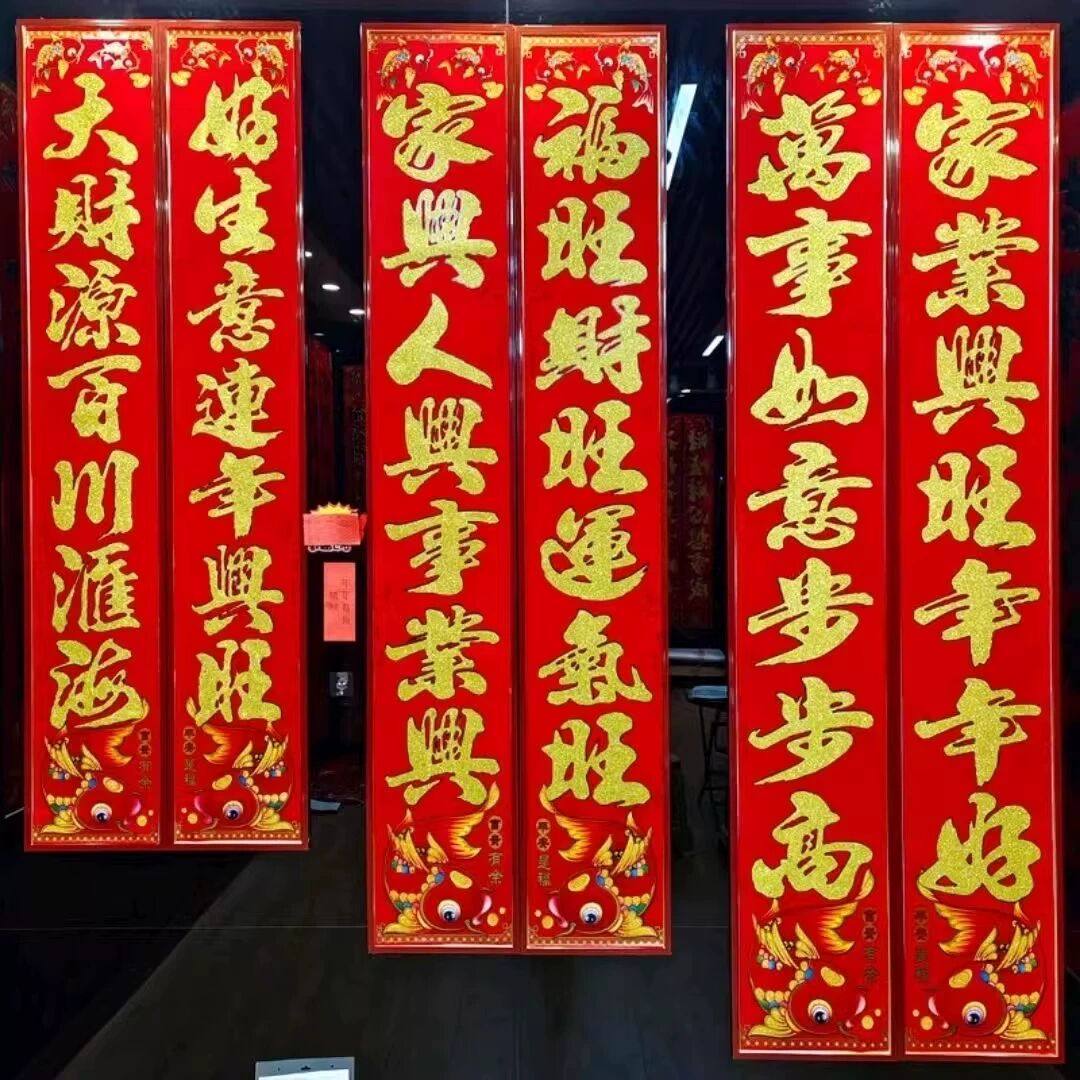 家業興旺年年好
平安是福
萬事如意步步高
富貴有余
福旺財旺運氣旺
平安是福
家興人興事業興
富貴有余
好生意連年興旺
平安是福
大財源百川滙海
富貴有余